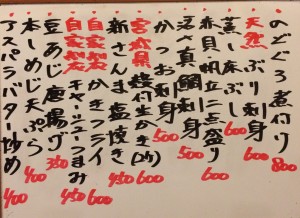 のどぐろ煮付け 800
天然 ぶり刺身 600
蒸し床ぶし 600
赤貝帆立二点盛り 600
活〆真鯛刺身 500
かつお刺身 500
宮城県 殻付生かき(2ケ) 600
新さんま塩焼き 450
自家製 かきフライ 600
自家製 チャーシューつまみ 450
豆あじ唐揚げ 350
本しめじ天ぷら 400
アスパラバター炒め 400